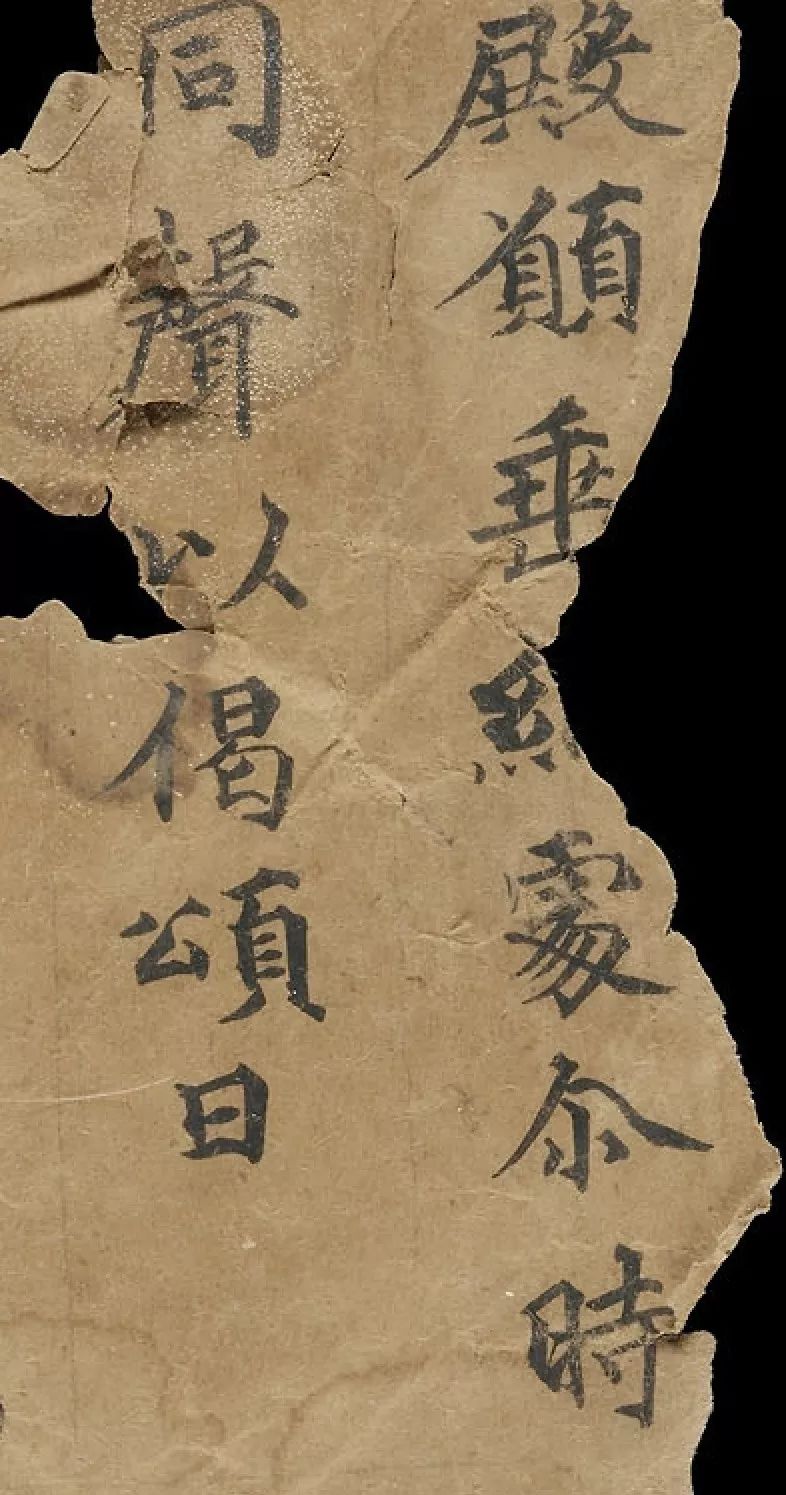 殿願垂納處尒時
同聲以偈頌曰